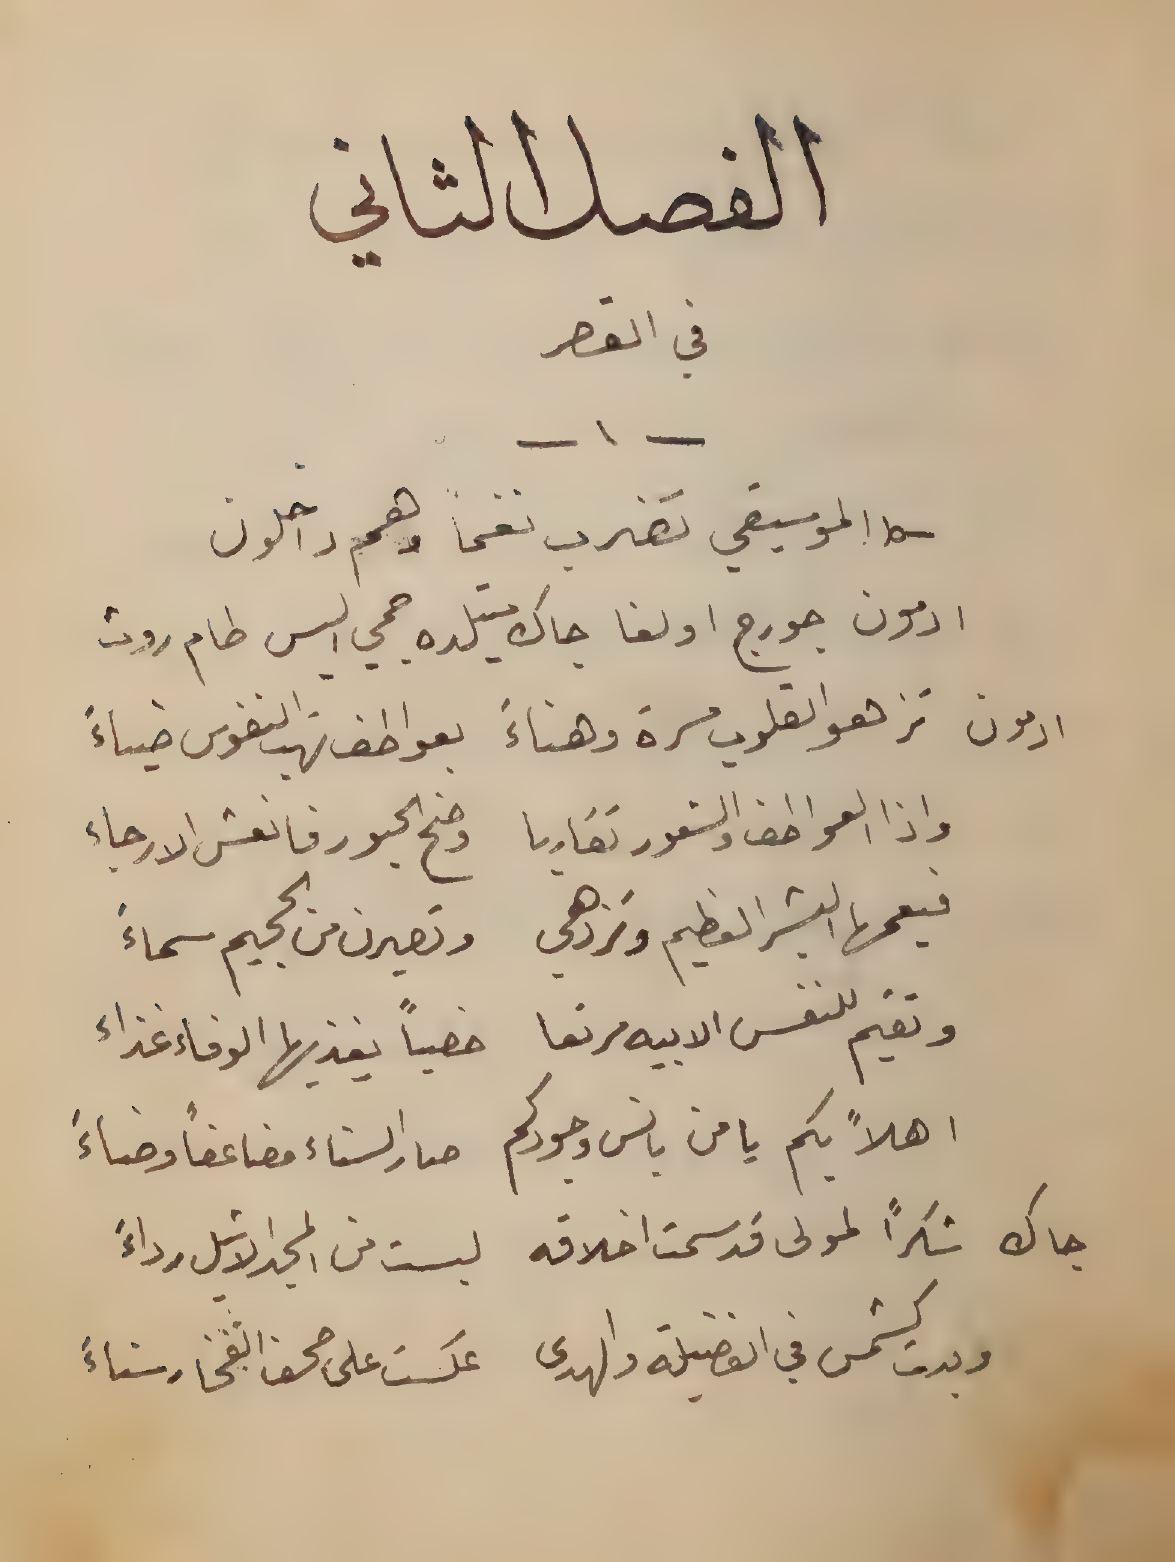 الفصل الثاني
في القصر
— ١ —
الموسيقى تضرب نغماً وهم داخلون
ادمون جورج اولغا جاك متيلده جيمي اليس طام روث
ادمون تزهو القلوب مسرة وهناءً بعواطف تهب النفوس ضياءً
واذا العواطف والشعور تقاربا وضح الحبور فانعش الارجاء
فيعمها البشر العظيم وتزدهي وتصيرن من الجحيم سماءً
وتقيم للنفس الابيه مرتعا خصباً يغذيها الوفاء غذاء
اهلاً بكم يا من بانس وجودكم صار السناء مضاعفاً وضاءً
جاك شكراً لمولى قد سمت اخلاقه لبست من المجد الاثيل رداءً
وبدت كشمس في الفضيلة والهدى عكست على صحف الفخار سناءً